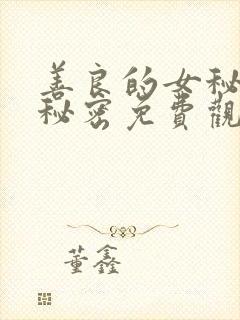 善良的女秘
秘密免費觀
董鑫